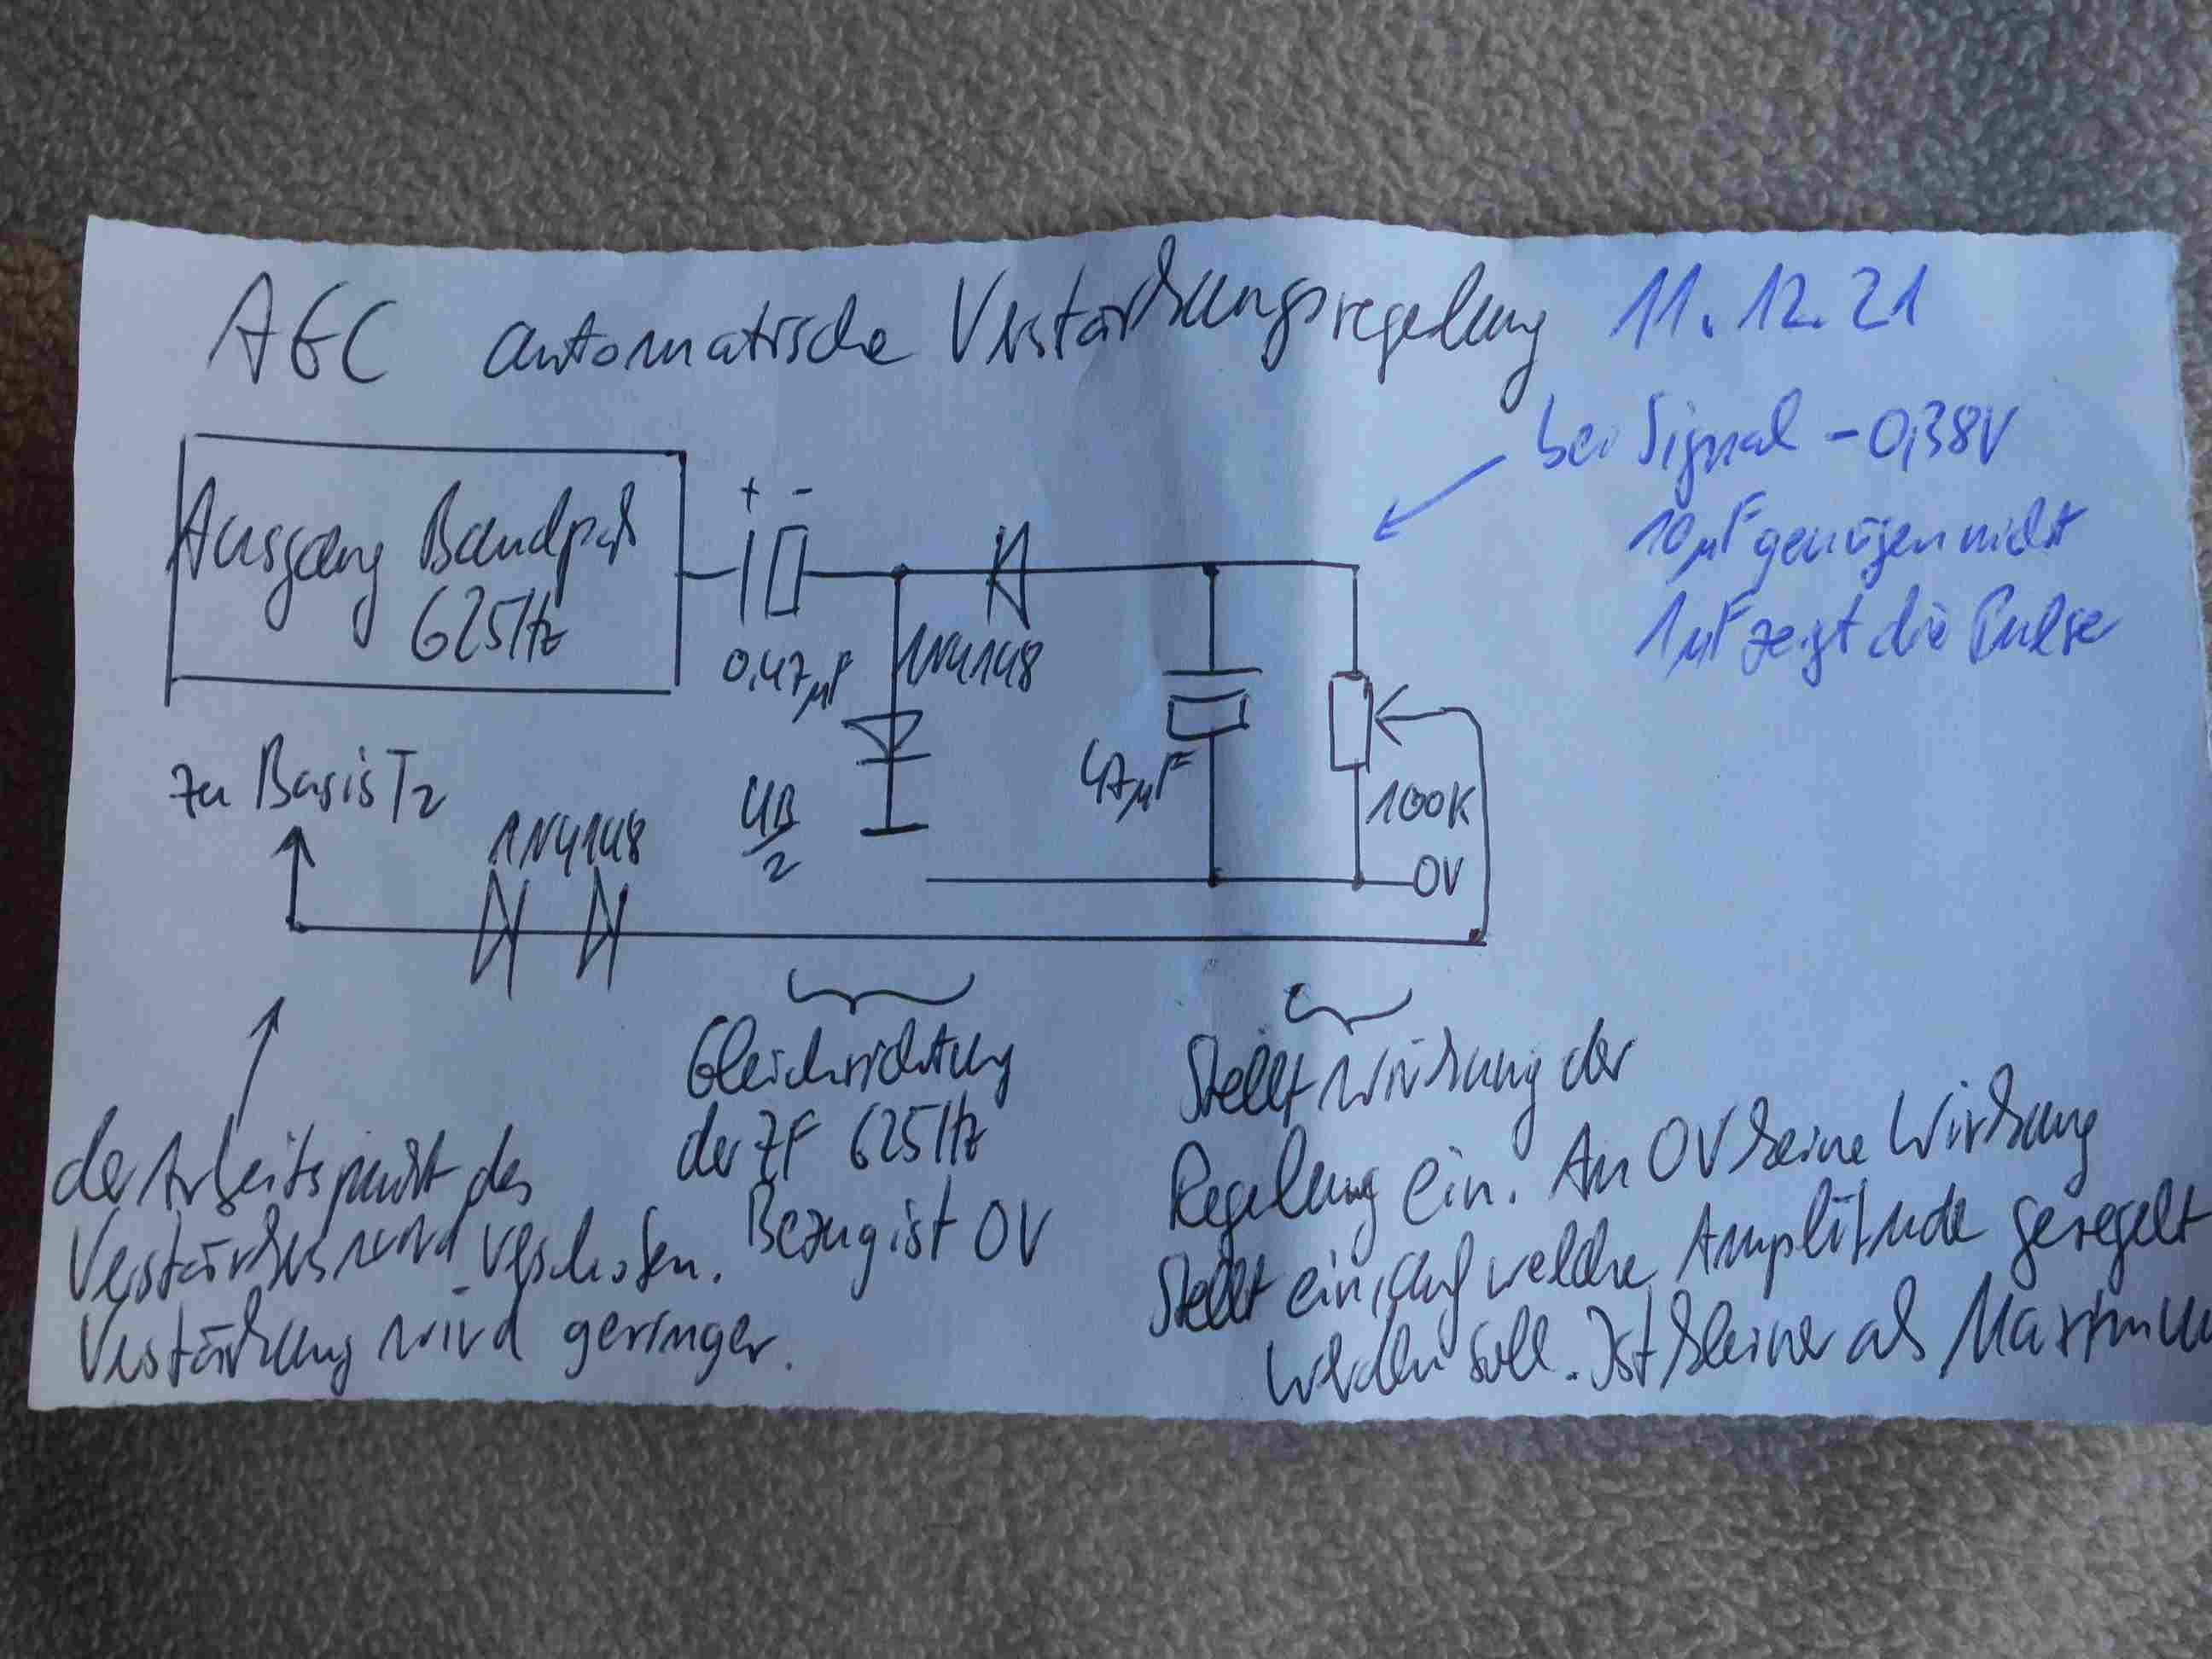 AGC automatische Verstärkungsregelung 11.12.21
bei Signal -0,38V
10µF genügen nicht
1µF zeigt die Pulse
Ausgang Bandpaß
625Hz
+ -
0,47µF
1N4148
47µF
100K
0V
UB/2
zu Basis T2
1N4148
Gleichrichtung
der ZF 625Hz
Bezug ist 0V
der Arbeitspunkt des
Verstärkers wird verschoben.
Verstärkung wird geringer.
Stellt Wirkung der
Regelung ein. An 0V keine Wirkung
Stellt ein, auf welche Amplitude geregelt
werden soll. Ist kleiner als Maximu